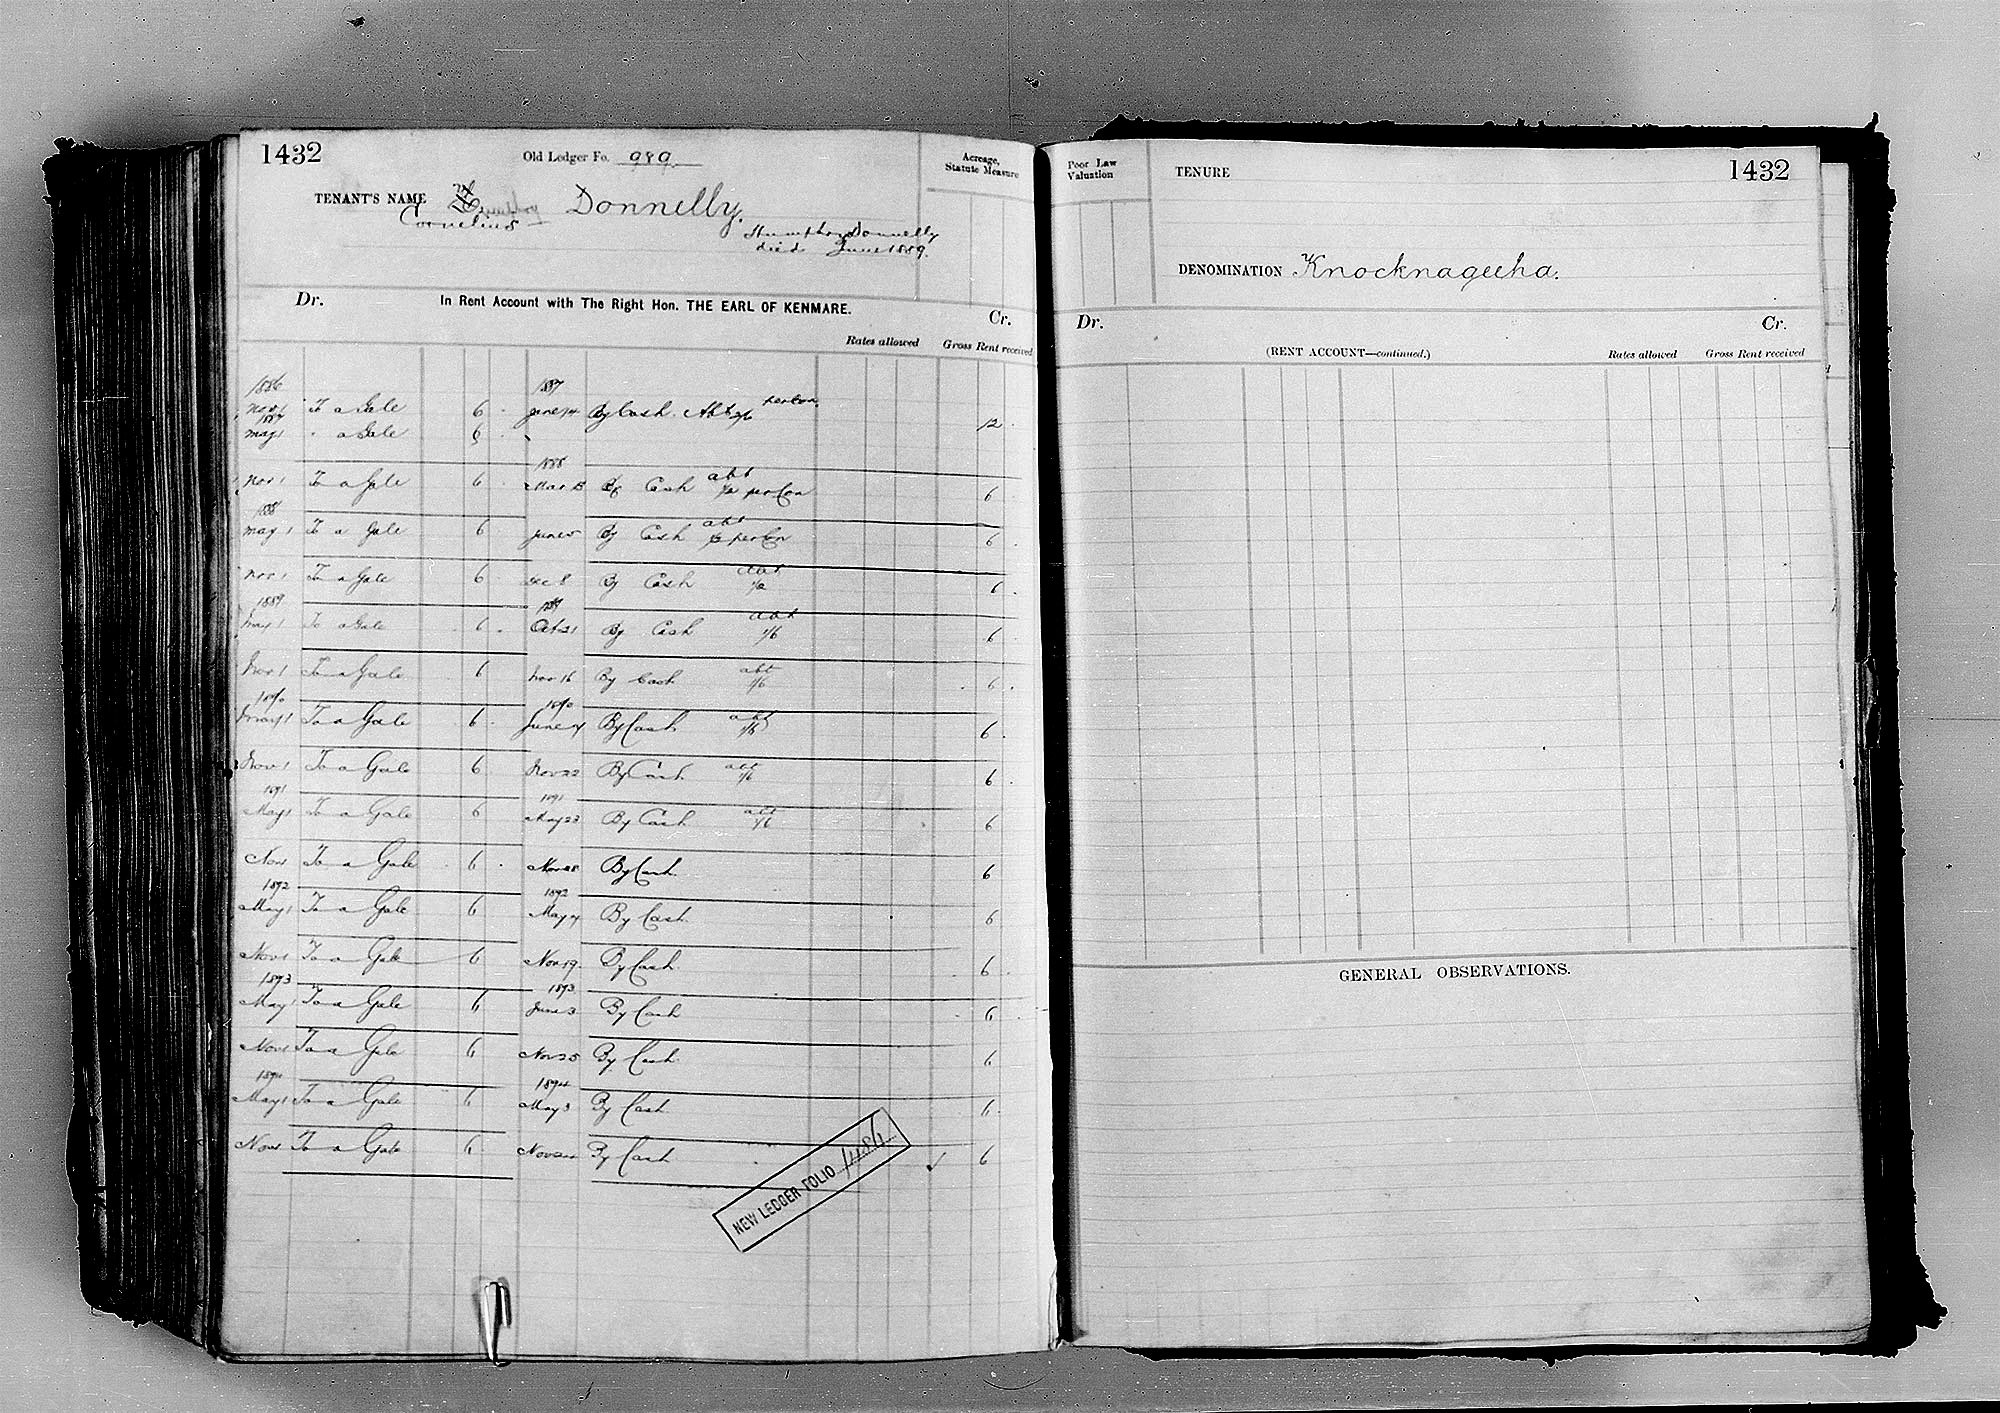 1432
Old Ledger Fo. 989.
Acreage,
Statute Measure
TENANT'S NAME Donnelly.
Cornelius
Humphrey Donnelly
died June 1889.
Dr. In Rent Account with The Right Hon. THE EARL OF KENMARE. Cr.
Rates allowed Gross Rent received
1886 1887
Nov 1 To a Gale 6 June 14 By Cash. Abt 2/6 per Con. 12
1887
May 1 " a Gale 6
1888
Nov 1 To a Gale 6 Mar 13 By Cash abt per Con 6
1888
May 1 To a Gale 6 June 5 By Cash abt per Con 6
Nov 1 To a Gale 6 Dec 8 By Cash abt 6
1889 1889
May 1 To a Gale 6 Oct 21 By Cash abt 1/6 6
Nov 1 To a Gale 6 Nov 16 By Cash abt 1/6 6
1890 1890
May 1 To a Gale 6 June 7 By Cash abt 1/6 6
Nov 1 To a Gale 6 Nov 22 By Cash abt 1/6 6
1891 1891
May 1 To a Gale 6 May 23 By Cash abt 1/6 6
Nov To a Gale 6 Nov 28 By Cash 6
1892 1892
May 1 To a Gale 6 May 7 By Cash 6
Nov 1 To a Gale 6 Nov 19. By Cash 6
1893 1893
May 1 To a Gale 6 June 3 By Cash 6
Nov 1 To a Gale 6 Nov 25 By Cash 6
1894 1894
May 1 To a Gale 6 May 3 By Cash 6
Nov 1 To a Gale 6 Nov 24 By Cash 6
NEW LEDGER FOLIO 1486
Poor Law
Valuation
TENURE
1432
DENOMINATION Knocknageeha.
Dr. Cr.
(RENT ACCOUNT—continued.) Rates allowed Gross Rent received
GENERAL OBSERVATIONS.